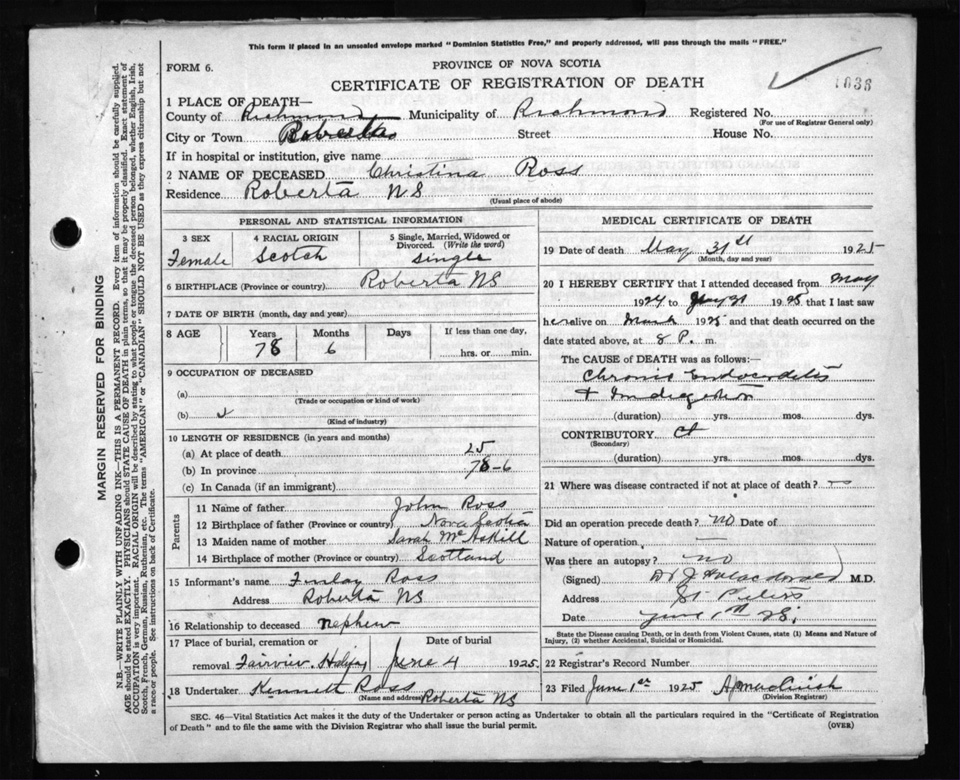 This form if placed in an unsealed envelope marked "Dominion Statistics Free," and properly addressed, will pass through the mails "FREE."
FORM 6.
PROVINCE OF NOVA SCOTIA
CERTIFICATE OF REGISTRATION OF DEATH
1838
1 PLACE OF DEATH—
County of Richmond Municipality of Richmond Registered No.
(For use of Registrar General only)
City or Town Roberta Street House No.
If in hospital or institution, give name
2 NAME OF DECEASED Christina Ross
Residence Roberta NS
(Usual place of abode)
PERSONAL AND STATISTICAL INFORMATION
3 SEX
Female
4 RACIAL ORIGIN
Scotch
5 Single, Married, Widowed or Divorced. (Write the word)
Single
6 BIRTHPLACE (Province or country) Roberta NS
7 DATE OF BIRTH (month, day and year)
8 AGE Years Months Days If less than one day,
78 6 hrs. or min.
9 OCCUPATION OF DECEASED
(a)
(Trade or occupation or kind of work)
(b)
(Kind of industry)
10 LENGTH OF RESIDENCE (in years and months)
(a) At place of death 25
(b) In province 78-6
(c) In Canada (if an immigrant)
Parents
11 Name of father John Ross
12 Birthplace of father (Province or country) Nova Scotia
13 Maiden name of mother Sarah McAskill
14 Birthplace of mother (Province or country) Scotland
15 Informant's name Finlay Ross
Address Roberta NS
16 Relationship to deceased nephew
17 Place of burial, cremation or removal Fairview Halifax
Date of burial
June 4 1925.
18 Undertaker Kenneth Ross
(Name and address) Roberta NS
MEDICAL CERTIFICATE OF DEATH
19 Date of death May 31st 1925
(Month, day and year)
20 I HEREBY CERTIFY that I attended deceased from May
1924 to May 31 1925 that I last saw
her alive on March 1925 and that death occurred on the
date stated above, at 8 P. m.
The CAUSE of DEATH was as follows:—
Chronic Endocarditis
+ Indigestion
(duration) yrs. mos. dys.
CONTRIBUTORY
(Secondary)
(duration) yrs. mos. dys.
21 Where was disease contracted if not at place of death?
Did an operation precede death? no Date of
Nature of operation
Was there an autopsy? no
(Signed) M.D.
Address St Peters
Date June 1st 25.
State the Disease causing Death, or in death from Violent Causes, state (1) Means and Nature of
Injury, (2) whether Accidental, Suicidal or Homicidal.
22 Registrar's Record Number
23 Filed June 1st 1925
(Division Registrar)
SEC. 46—Vital Statistics Act makes it the duty of the Undertaker or person acting as Undertaker to obtain all the particulars required in the "Certificate of Registration
of Death" and to file the same with the Division Registrar who shall issue the burial permit.
(OVER)
MARGIN RESERVED FOR BINDING
N.B.—WRITE PLAINLY WITH UNFADING INK—THIS IS A PERMANENT RECORD. Every item of information should be carefully supplied.
AGE should be stated EXACTLY. PHYSICIANS should STATE CAUSE OF DEATH in plain terms, so that it may be properly classified. Exact statement of
OCCUPATION is very important. RACIAL ORIGIN will be described by stating to what people or tongue the deceased person belonged, whether English, Irish,
Scotch, French, German, Russian, Ruthenian, etc. The terms "AMERICAN" or "CANADIAN" SHOULD NOT BE USED as they express citizenship but not
a race or people. See instructions on back of Certificate.